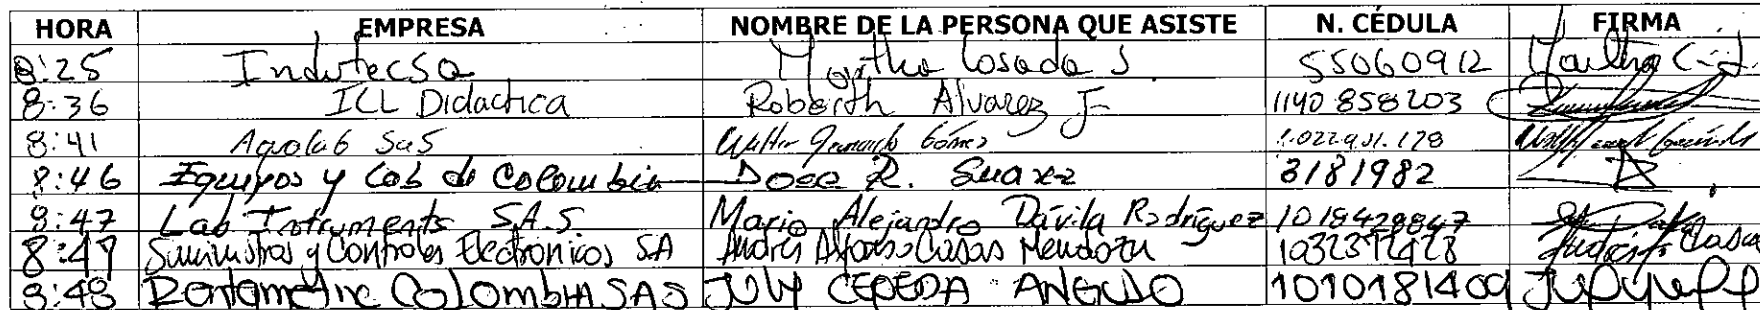 HORA EMPRESA NOMBRE DE LA PERSONA QUE ASISTE N. CÉDULA FIRMA
8:25 Indutecsa Martha Losada S. 55060912
8:36 ICL Didactica Roberth Alvarez J 1140 858203
8:41 Aqualab SaS Walter Gómez
8:46 Equipos y Lab de Colombia Jose R. Suarez 3181982
8:47 Lab Instruments S.A.S. Mario Alejandro Dávila Rodríguez 1018429847
8:47 Suministros y Controles Electronicos SA Andres Alfonso Casas Mendoza
8:48 Colombia SAS July CEPEDA ANGULO 1010181409